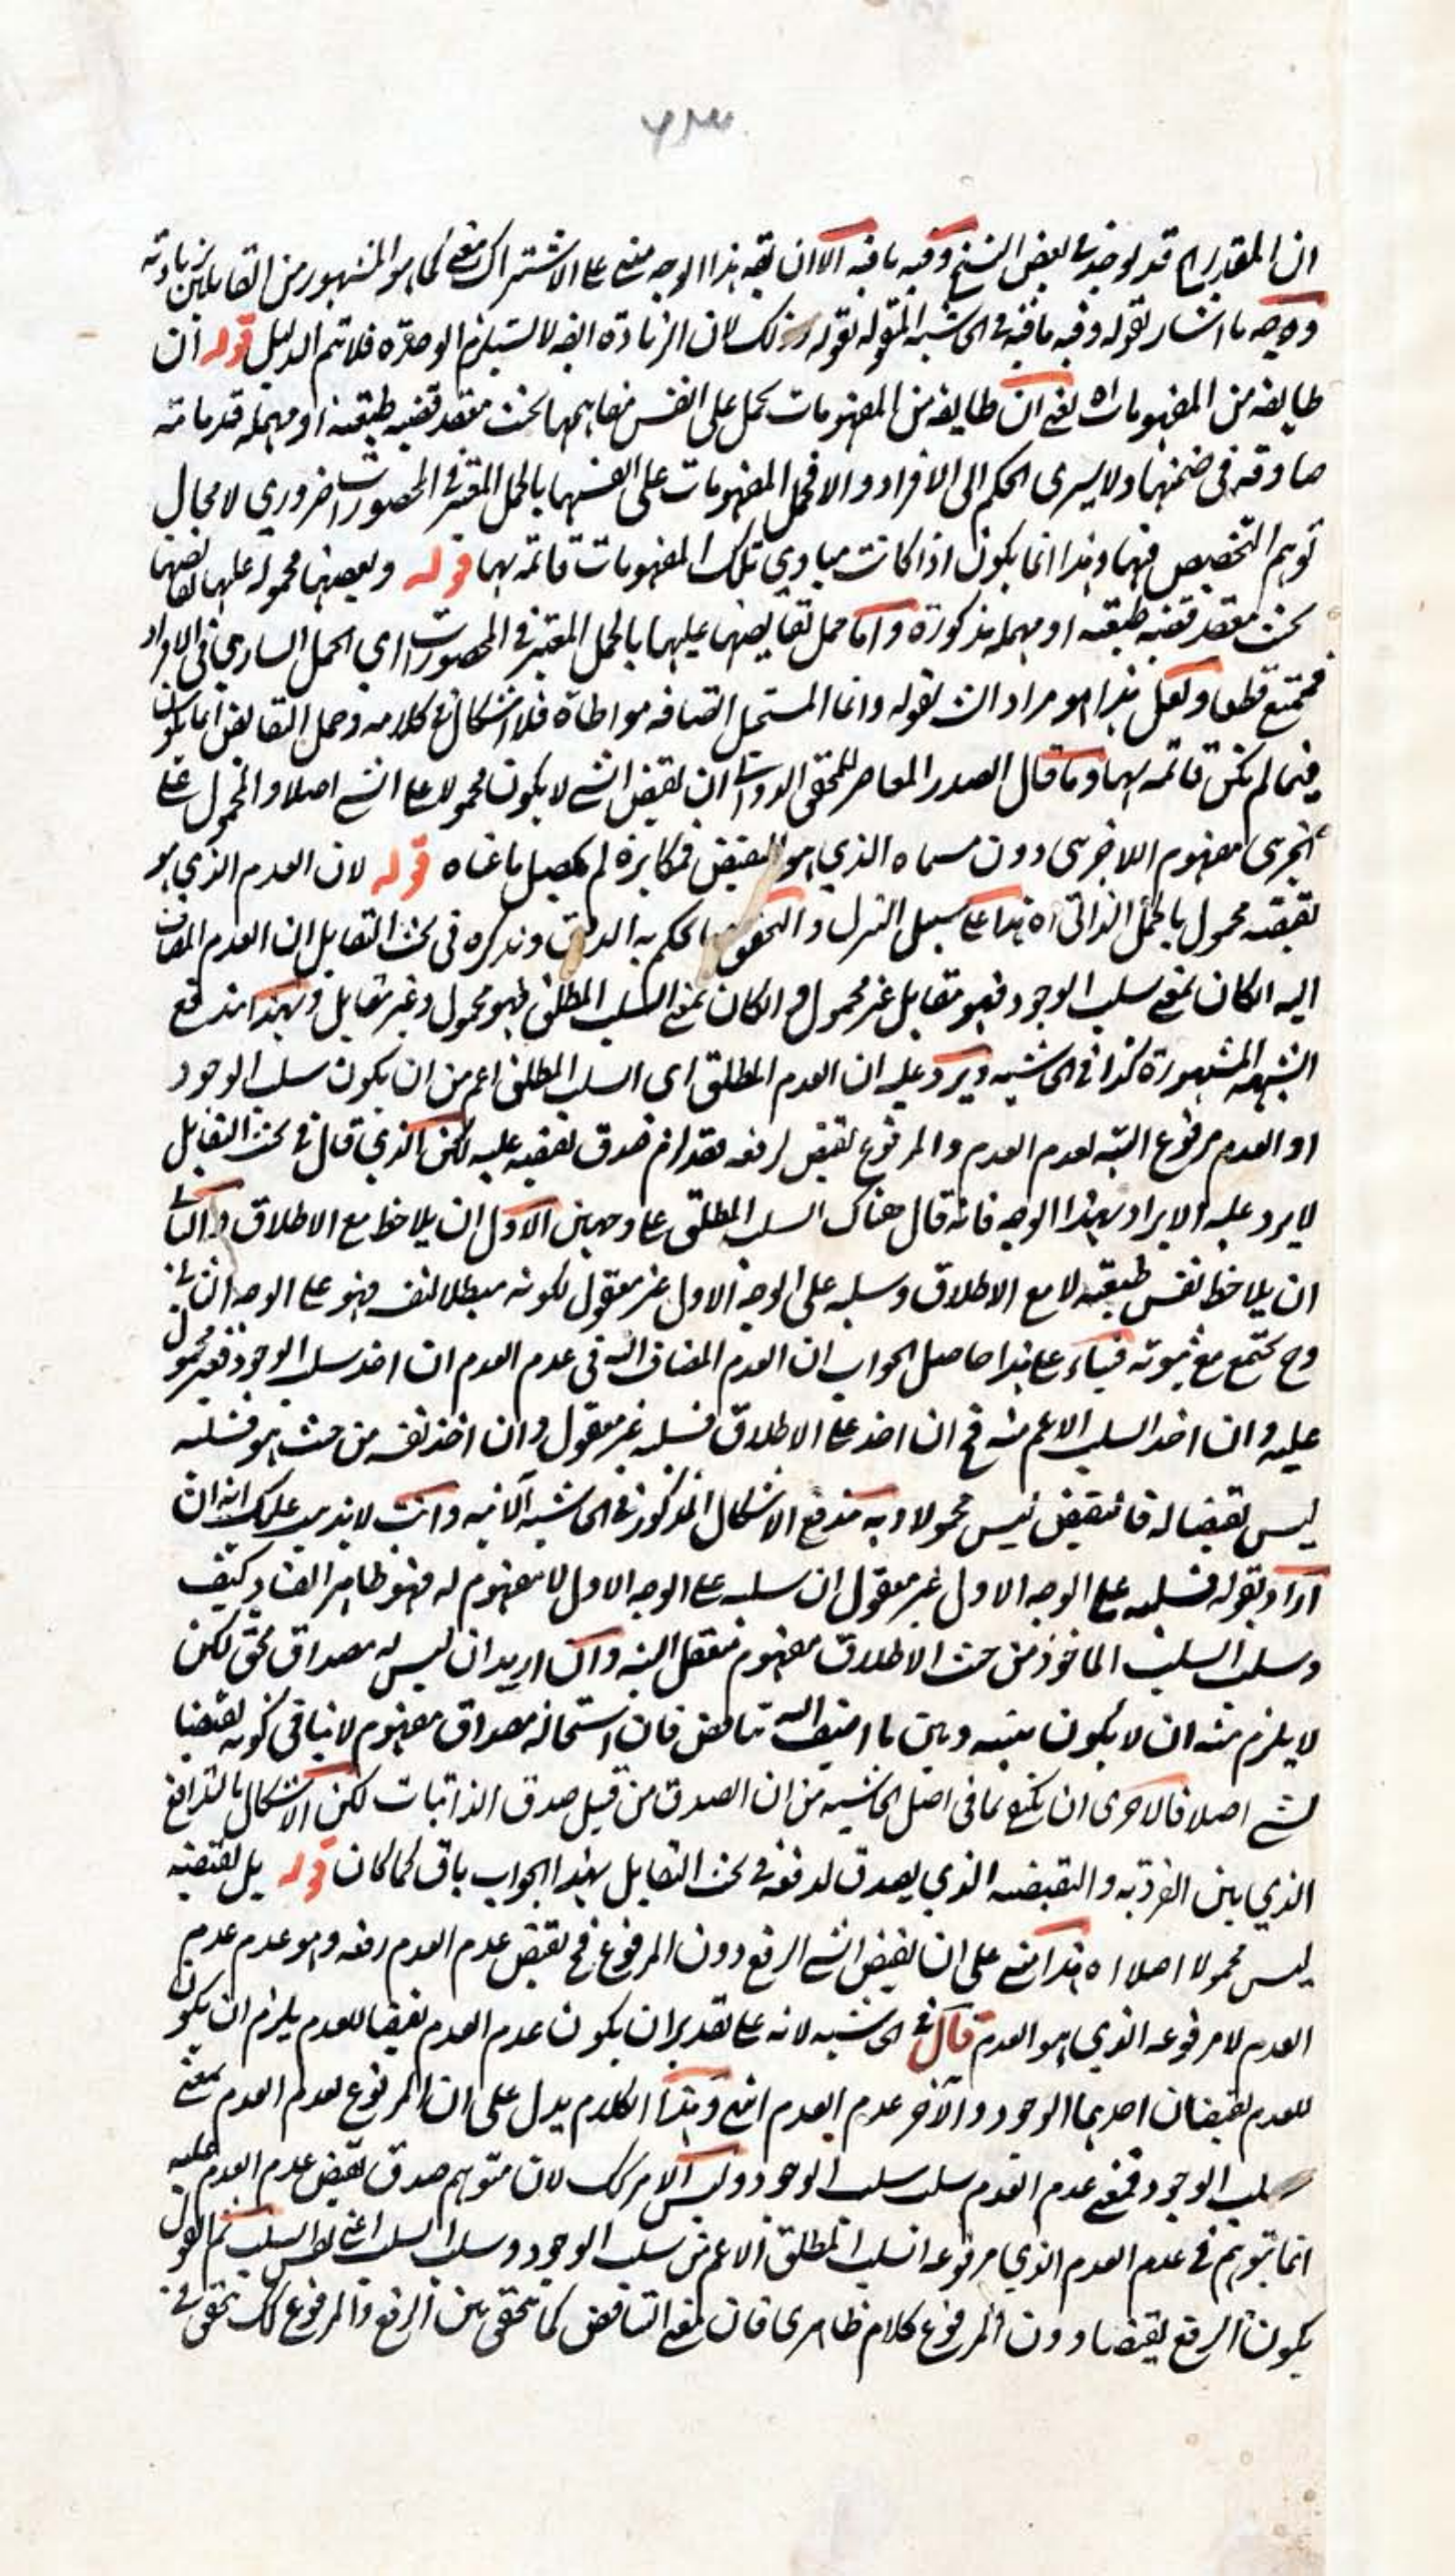 ان المقدر اه قد يوجد في بعض النسخ وفيه ما فيه الا ان هذا الوجه مبنى على الاشتراك كما هو المشهور من القايلين بزيادته
ما اشار بقوله وفيه ما فيه في الحاشية المقولة بقوله وذلك لان الزيادة ايضا لا يستلزم الوحدة فلا يتم الدليل قوله ان
طايفة من المفهومات اه يعني ان طايفة من المفهومات تحمل على انفس مفاهيمها بحيث منعقد قضية طبيعية او مهملة قدمائية
صادقة في ضمنها ولا يسرى الحكم الى الافراد والا فحمل المفهومات على انفسها بالحمل المعتبر في المحصورات ضروري لا مجال
توهم التخصيص فيها وهذا انما يكون اذا كانت مبادي تلك المفهومات قائمة بها قوله وبعضها محمولة عليها نقايضها
بحيث منعقد قضية طبيعية او مهملة مذكورة واما حمل نقايضها عليها بالحمل المعتبر في المحصورات اي الحمل الساري في الافراد
فممتنع قطعا ولعل هذا هو مراد الش بقوله وانما المستحيل اتصافه مواطاة فلا اشكال في كلامه وحمل النقايض انما يكون
فيما لم يكن قائمة بها وما قال الصدر المعاصر للمحقق الدواني ان نقيض الشي لا يكون محمولا على الشي اصلا والمحمول على
الجزئى مفهوم اللاجزئى دون مسماه الذي هو النقيض فمكابرة لم يحصل ما عناه قوله لان العدم الذي هو
نقيضه محمول بالحمل الذاتي اه هذا على سبيل التنزل والتحقيق ما حكم به ونذكره في بحث التقابل ان العدم المضاف
اليه ان كان بمعنى سلب الوجود فهو مقابل غير محمول وان كان بمعنى السلب المطلق فهو محمول وغير مقابل وبهذا يندفع
الشبهة المشهورة كذا في الحاشية ويرد عليه ان العدم المطلق اي السلب المطلق اعم من ان يكون سلب الوجود
او العدم مرفوع البتة لعدم العدم والمرفوع نقيض لرفعه فقد لزم صدق نقيضه عليه لكن الذي قال في بحث التقابل
لا يرد عليه الايراد بهذا الوجه فانه قال هناك السلب المطلق على وجهين الاول ان يلاحظ مع الاطلاق والثاني
ان يلاحظ نفس طبيعته لا مع الاطلاق وسلبه على الوجه الاول غير معقول لكونه مبطلا لنفسه فهو على الوجه الثاني
وح يجتمع مع ثبوته فبناء على هذا حاصل الجواب ان العدم المضاف اليه في عدم العدم ان اخذ سلب الوجود فغير محمول
عليه وان اخذ السلب الاعم منه فح ان اخذ على الاطلاق فسلبه غير معقول وان اخذ نفسه من حيث هو فسلبه
ليس نقيضا له فالنقيض ليس محمولا وبه يندفع الاشكال المذكور في الحاشية الآتية وانت لا يذهب عليك انه ان
اراد بقوله فسلبه على الوجه الاول غير معقول ان سلبه على الوجه الاول لا مفهوم له فهو ظاهر الفساد كيف
وسلب السلب الماخوذ من حيث الاطلاق مفهوم متعقل البتة وان اريد ان ليس له مصداق محقق لكن
لا يلزم منه ان لا يكون بينه وبين ما اضيف اليه تناقض فان استحالة مصداق مفهوم لا ينافي كونه نقيضا
لشي اصلا فالاحرى ان يكتفى بما في اصل الحاشية من ان الصدق من قبيل صدق الذاتيات لكن الاشكال بالتدافع
الذي بين الفردية والنقيضية الذي يصدق لدفعه في بحث التقابل بهذا الجواب باق كما كان قوله بل نقيضه
ليس محمولا اصلا اه هذا مبنى على ان نقيض الشي الرفع دون المرفوع فح نقيض عدم العدم رفعه وهو عدم عدم
العدم لا مرفوعه الذي هو العدم قال في الحاشية لانه على تقدير ان يكون عدم العدم نقيضا للعدم يلزم ان يكون
للعدم نقيضان احدهما الوجود والآخر عدم العدم انتهى وهذا الكلام يدل على ان المرفوع لعدم العدم بمعنى
سلب الوجود فمعنى عدم العدم سلب سلب الوجود وليس الامر كك لان متوهم صدق نقيض عدم العدم عليه
انما يتوهم في عدم العدم الذي مرفوعه السلب المطلق الاعم من سلب الوجود وسلب السلب اعنى نفس السلب ثم القول
بكون الرفع نقيضا دون المرفوع كلام ظاهرى فان معنى التناقض كما يتحقق بين الرفع والمرفوع كك يتحقق في